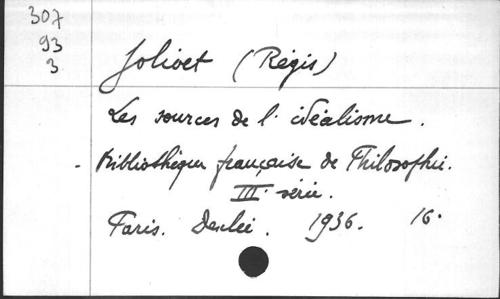 307
93
3
Jolivet (Régis)
Les sources de l'idéalisme.
- Bibliothèque française de Philosophie.
III. série.
Paris. Desclée. 1936. 16°